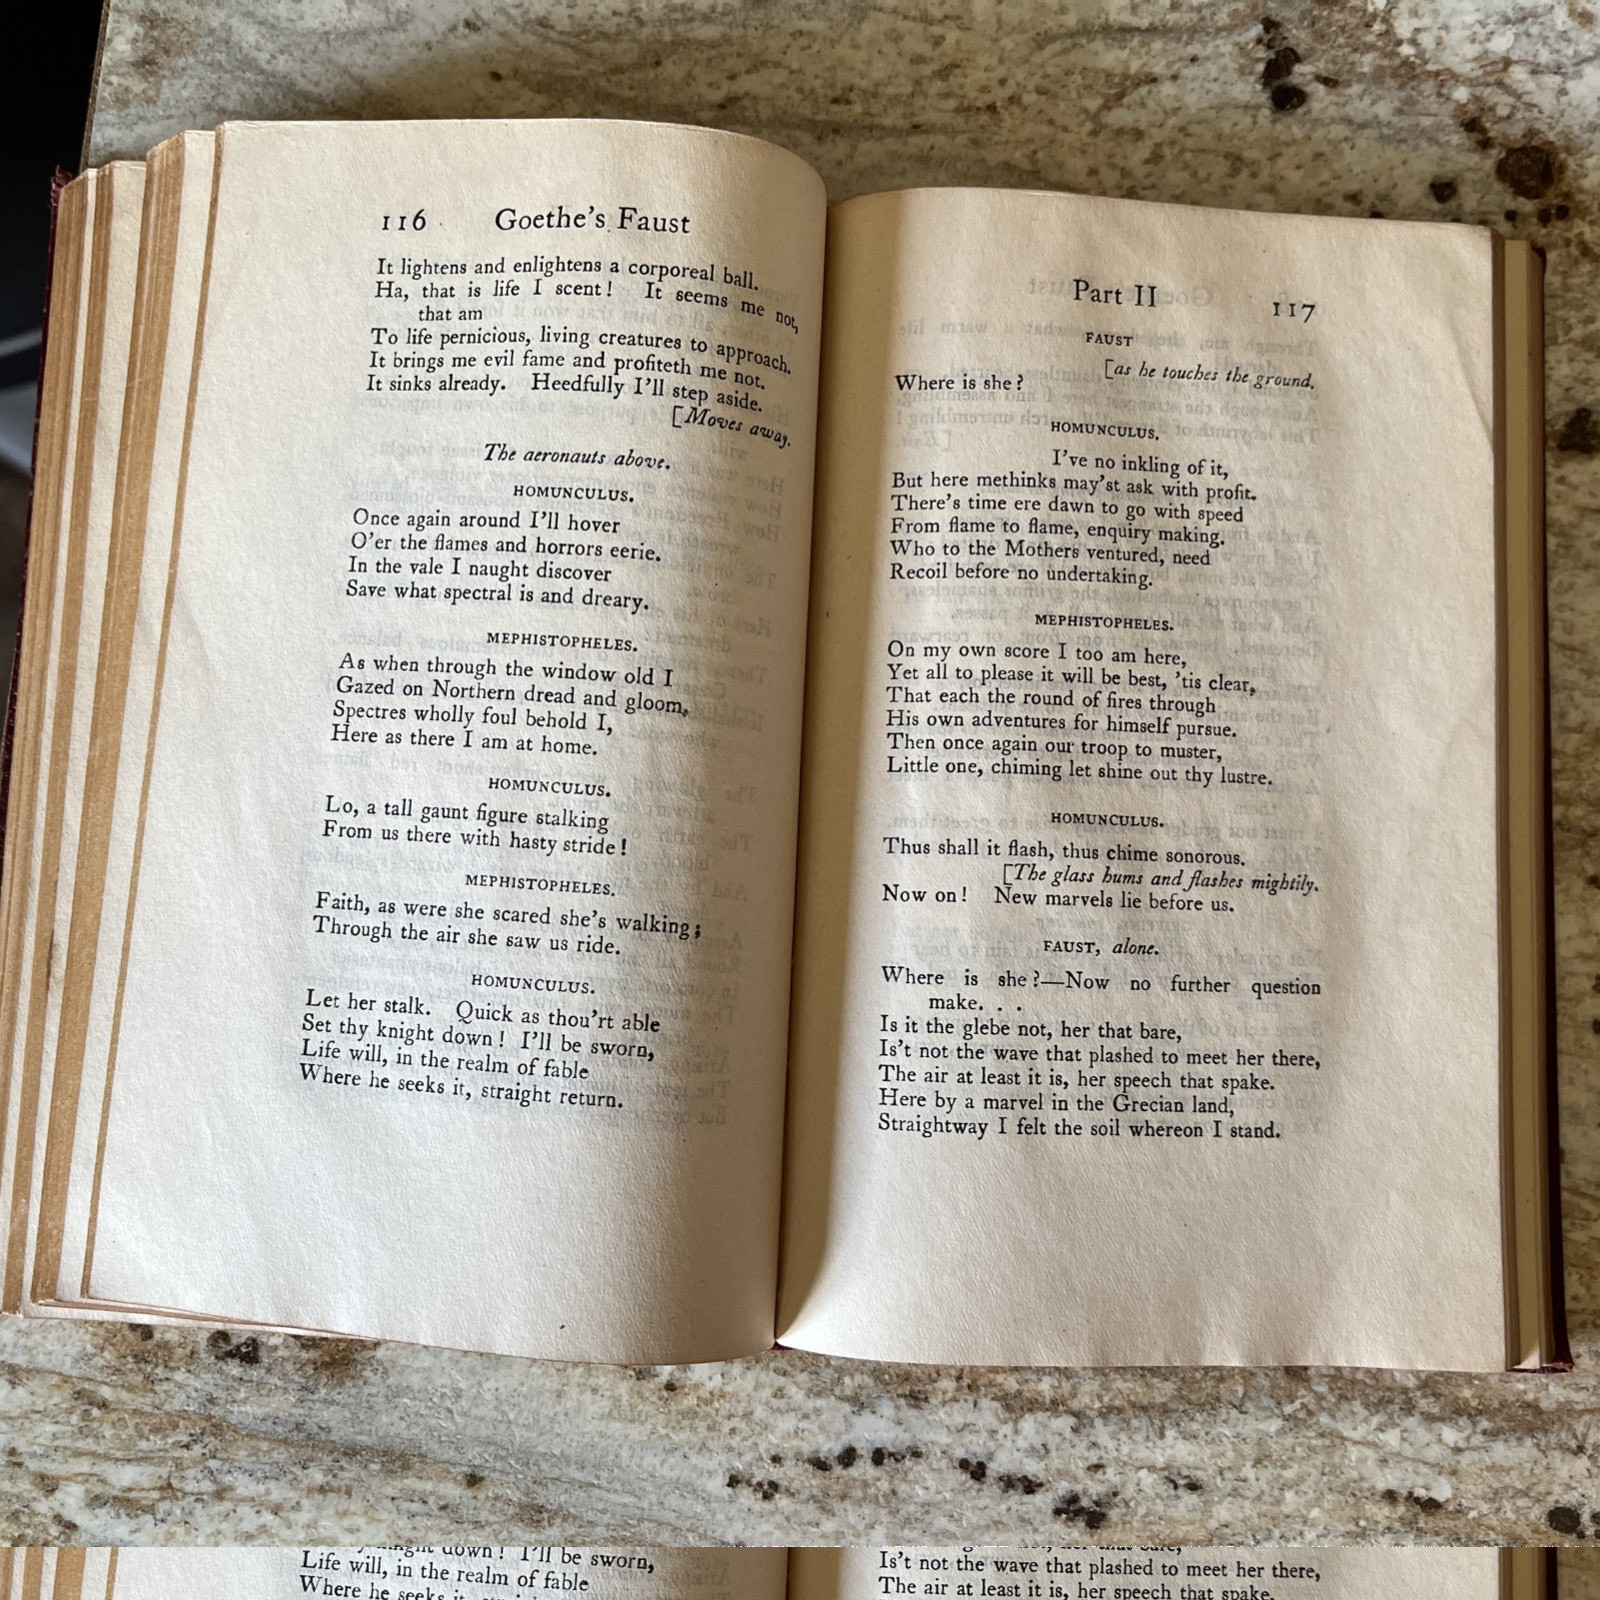 116 Goethe's Faust
It lightens and enlightens a corporeal ball.
Ha, that is life I scent! It seems me not,
that am
To life pernicious, living creatures to approach.
It brings me evil fame and profiteth me not.
It sinks already. Heedfully I'll step aside.
[Moves away.
The aeronauts above.
HOMUNCULUS.
Once again around I'll hover
O'er the flames and horrors eerie.
In the vale I naught discover
Save what spectral is and dreary.
MEPHISTOPHELES.
As when through the window old I
Gazed on Northern dread and gloom,
Spectres wholly foul behold I,
Here as there I am at home.
HOMUNCULUS.
Lo, a tall gaunt figure stalking
From us there with hasty stride!
MEPHISTOPHELES.
Faith, as were she scared she's walking;
Through the air she saw us ride.
HOMUNCULUS.
Let her stalk. Quick as thou'rt able
Set thy knight down! I'll be sworn,
Life will, in the realm of fable
Where he seeks it, straight return.
Part II 117
FAUST
[as he touches the ground.
Where is she?
HOMUNCULUS.
I've no inkling of it,
But here methinks may'st ask with profit.
There's time ere dawn to go with speed
From flame to flame, enquiry making.
Who to the Mothers ventured, need
Recoil before no undertaking.
MEPHISTOPHELES.
On my own score I too am here,
Yet all to please it will be best, 'tis clear,
That each the round of fires through
His own adventures for himself pursue.
Then once again our troop to muster,
Little one, chiming let shine out thy lustre.
HOMUNCULUS.
Thus shall it flash, thus chime sonorous.
[The glass hums and flashes mightily.
Now on! New marvels lie before us.
FAUST, alone.
Where is she?—Now no further question
make. . .
Is it the glebe not, her that bare,
Is't not the wave that plashed to meet her there,
The air at least it is, her speech that spake.
Here by a marvel in the Grecian land,
Straightway I felt the soil whereon I stand.
knight down! I'll be sworn,
Life will, in the realm of fable
Where he seeks it, straight return.
Is't not the wave that plashed to meet her there,
The air at least it is, her speech that spake.